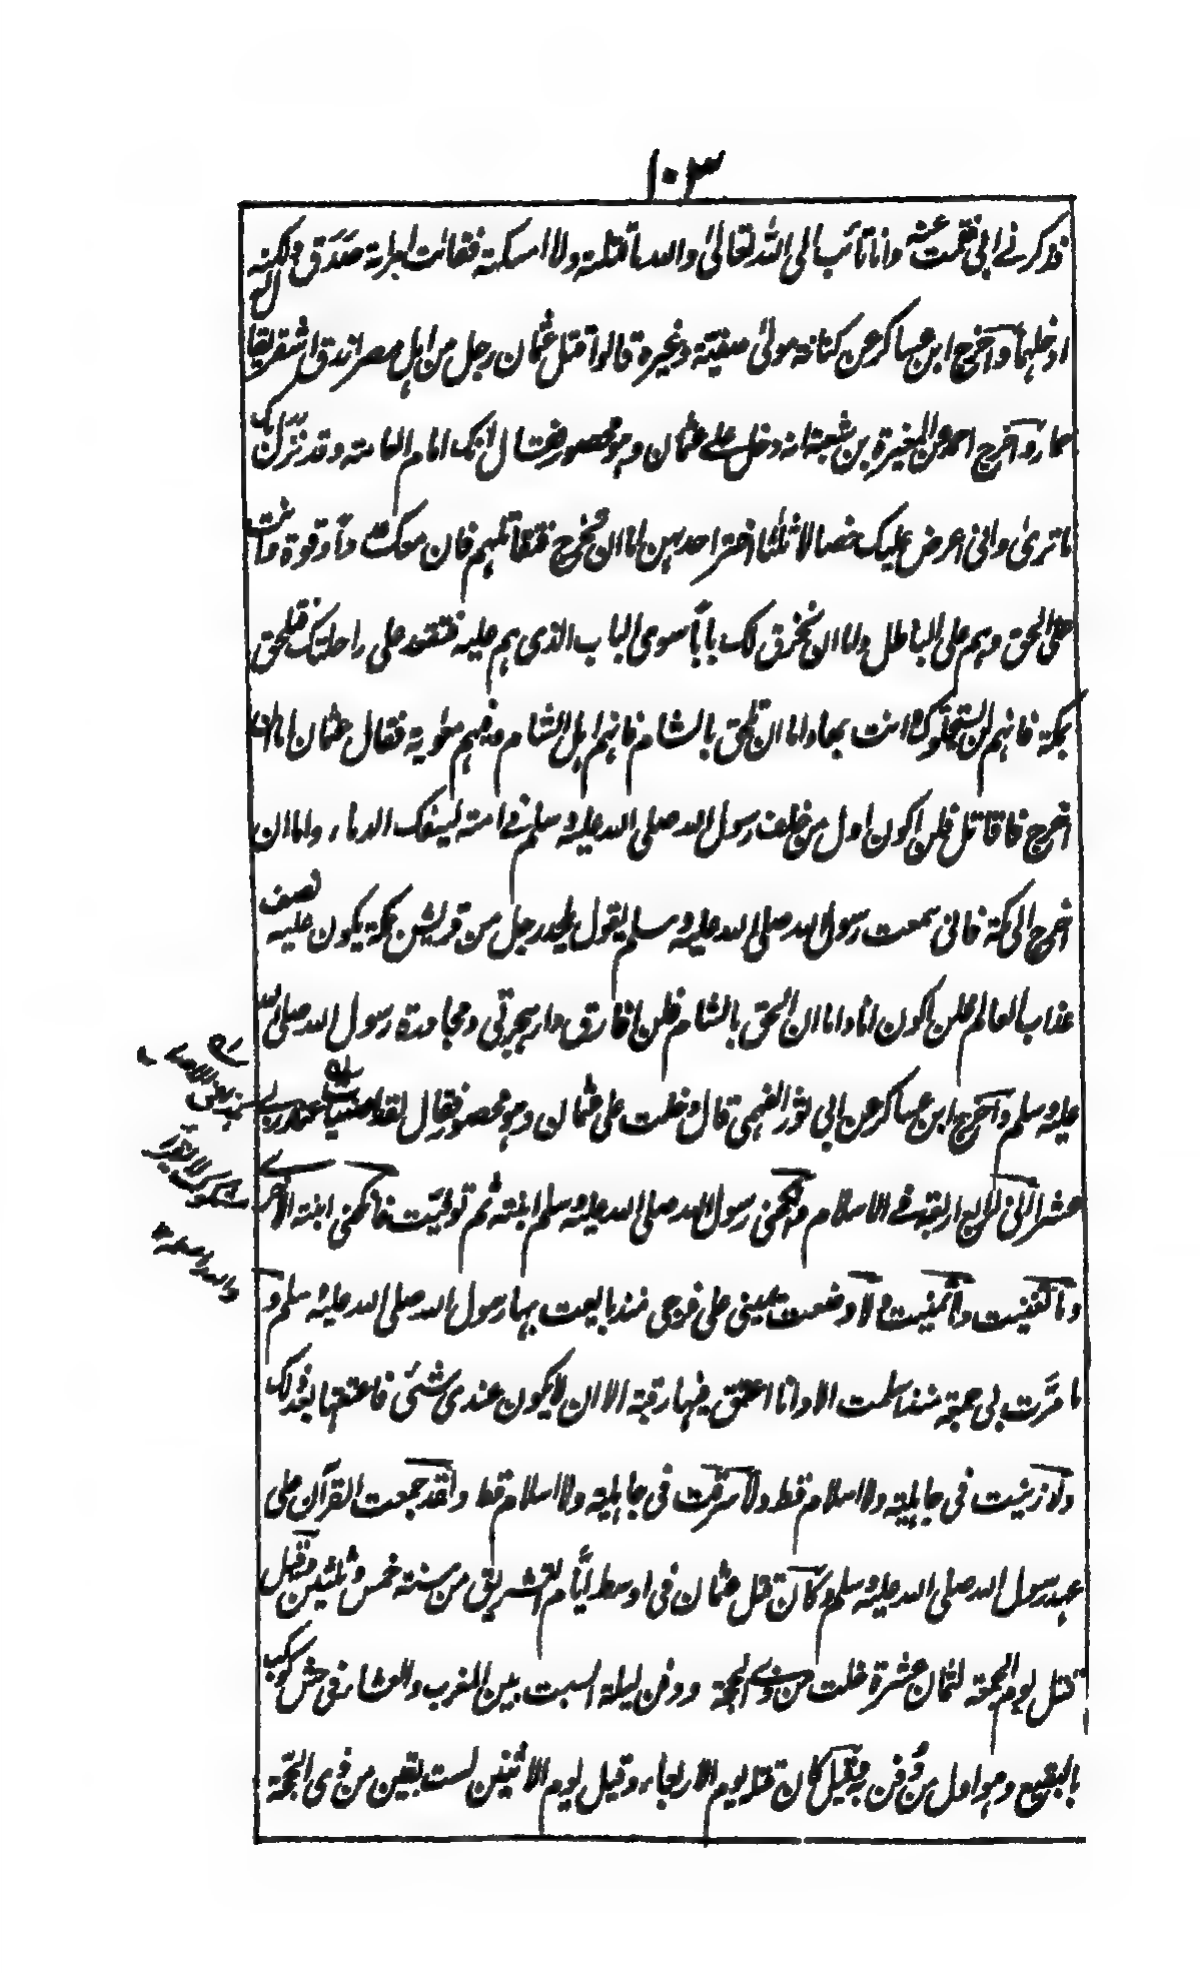 ١٠٣
فذكرني ابي فقمت عنه وانا تائب الى الله تعالىٰ والله ما قتلته ولا امسكته فقالت امرأته صدق ولكنه
ادخلهما واخرج ابن عساكر عن كنانة مولىٰ صفية وغيره قالوا قتل عثمان رجل من اهل مصر ازرق اشقر يقال له
حمار واخرج احمد عن المغيرة بن شعبة انه دخل على عثمان وهو محصور فقال انك امام العامة وقد نزل بك
ما ترىٰ وانى اعرض عليك خصالا ثلثا اختر احدهن اما ان تخرج فتقاتلهم فان معك عددا وقوة وانت
على الحق وهم على الباطل واما ان تخرق لك بابا سوى الباب الذى هم عليه فتقعد على راحلتك فتلحق
بمكة فانهم لن يستحلوك وانت بها واما ان تلحق بالشام فانهم اهل الشام وفيهم معٰوية فقال عثمان اما ان
اخرج فاقاتل فلن اكون اول من خلف رسول الله صلى الله عليه وسلم فى امته بسفك الدماء واما ان
اخرج الى مكة فانى سمعت رسول الله صلى الله عليه وسلم يقول يلحد رجل من قريش بمكة يكون عليه نصف
عذاب العالم فلن اكون انا واما ان الحق بالشام فلن افارق دار هجرتى ومجاورة رسول الله صلى الله
عليه وسلم واخرج ابن عساكر عن ابى ثور الفهمى قال دخلت على عثمان وهو محصور فقال لقد اختبأت عند ربى
عشرا انى لرابع اربعة فى الاسلام وانكحنى رسول الله صلى الله عليه وسلم ابنته ثم توفيت فانكحنى ابنته الاخرى
وما تغنيت ولا تمنيت ولا وضعت يمينى على فرجى منذ بايعت بها رسول الله صلى الله عليه وسلم و
ما مرت بى جمعة منذ اسلمت الا وانا اعتق فيها رقبة الا ان لا يكون عندى شئ فاعتقها بعد ذلك
ولا زنيت فى جاهلية ولا اسلام قط ولا سرقت فى جاهلية ولا اسلام قط ولقد جمعت القرآن على
عهد رسول الله صلى الله عليه وسلم وكان قتل عثمان فى اوسط ايام التشريق من سنة خمس وثلثين وقيل
قتل يوم الجمعة لثمان عشرة خلت من ذى الحجة ودفن ليلة السبت بين المغرب والعشاء فى حش كوكب
بالبقيع وهو اول من دفن به وقيل كان قتله يوم الاربعاء وقيل يوم الاثنين لست بقين من ذى الحجة